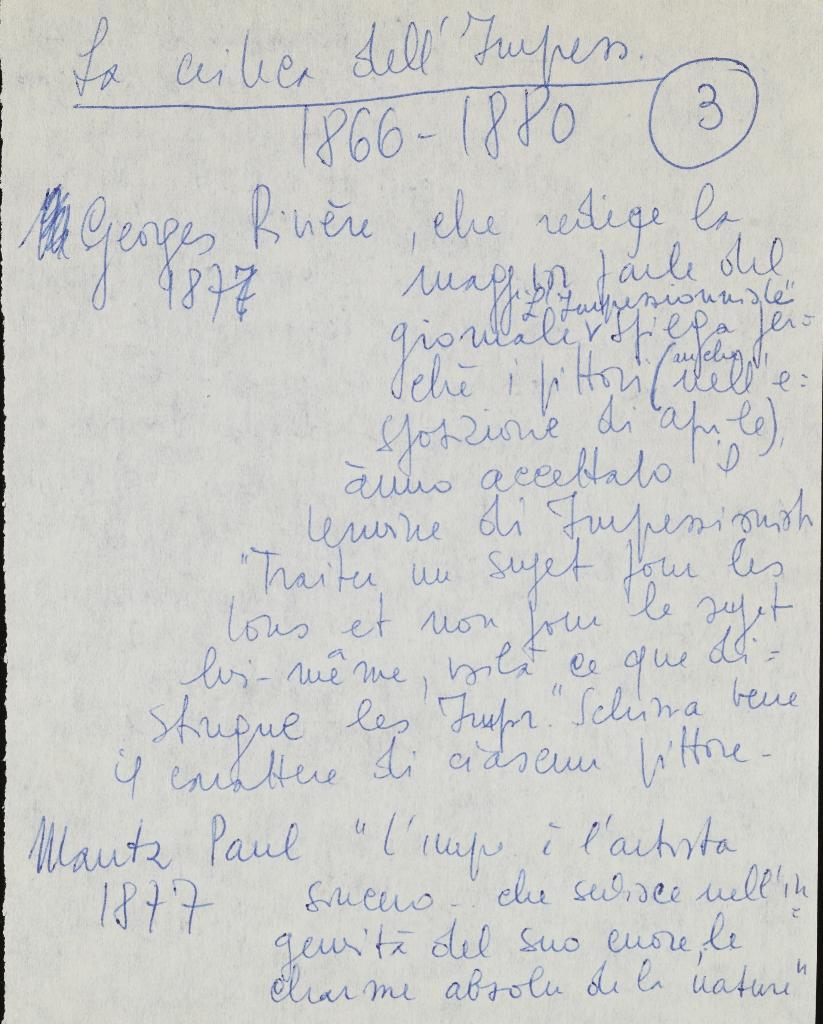 La critica dell'Impress.
1866-1880
3
Georges Rivière, che redige la
1877 maggior parte del
"L'Impressionniste"
giornale spiega per=
chè i pittori (anche nell'e=
sposizione di aprile),
ànno accettato il
termine di Impressionisti
"Traiter un sujet pour les
tons et non pour le sujet
lui-même, voilà ce que di=
stingue les Impr." Schizza bene
il carattere di ciascun pittore-
Mantz Paul "l'imp. è l'artista
1877 sincero - che subisce nell'in
genuità del suo cuore, le
charme absolu de la nature"